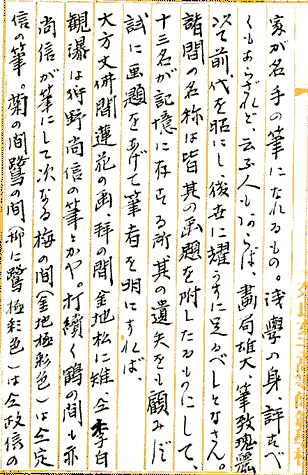 家が名手の筆になれるもの。浅學の身、評すべ
くもあらざれど、云ふ人もあらば、畫局雄大、筆致瑰麗
以て前代を昭にし、後世に耀かすに足るべしとなさん。
諸間の名称は皆其の画題を附したるものにして、
十三名が記憶に存する所其の遺矢をも顧みず
試に画題をあげて筆者を明にすれば、
大方丈佛間蓮花の画、拜の間、金地松に雉仝李白
観瀑は狩野尚信の筆とかや。打續く鶴の間も亦
尚信が筆にして次なる梅の間(金地極彩色)は仝定
信の筆。菊の間鷺の間(柳に鷺極彩色)は仝政信の